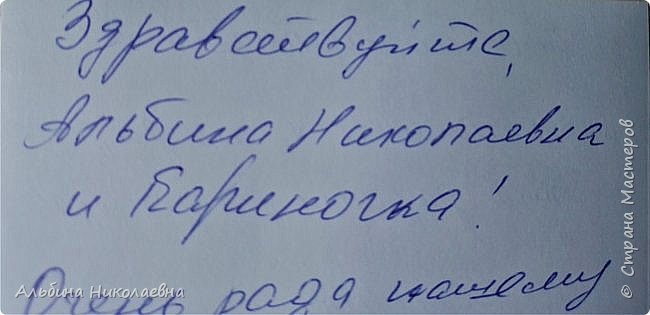 Здравствуйте,
Альбина Николаевна
и Кариночка!
Очень рада нашему
Альбина Николаевна
© Страна Мастеров